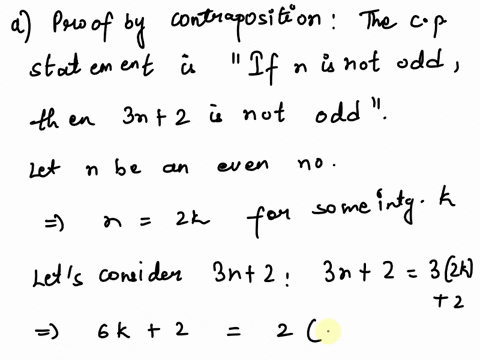 a) Proof by contraposition: The c.p
statement is "If n is not odd,
then 3n+2 is not odd".
Let n be an even no.
⇒ n = 2k for some intg. k
Let's consider 3n+2: 3n+2 = 3(2k)
+2
⇒ 6k + 2 = 2 (